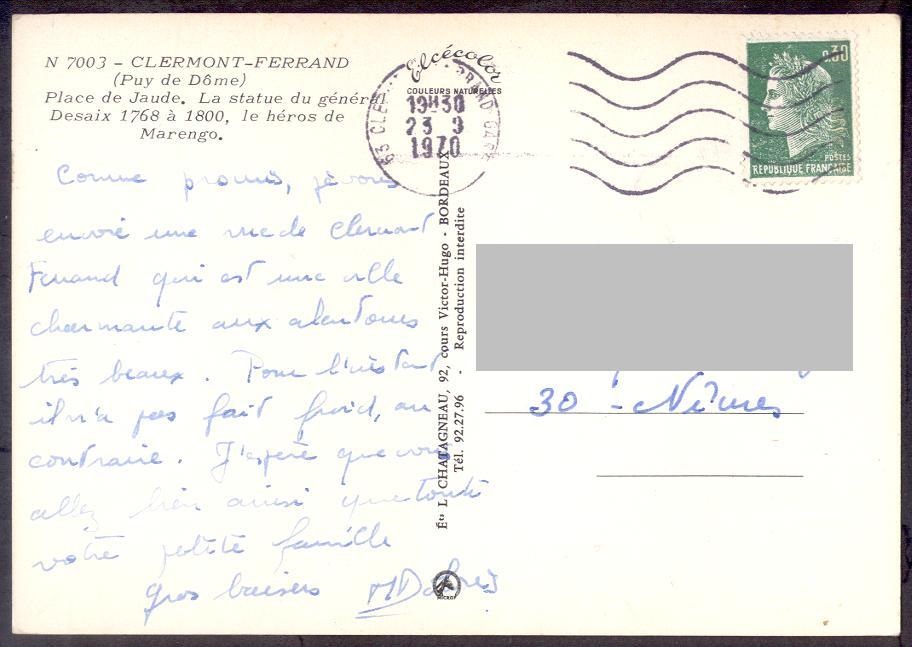 N 7003 - CLERMONT-FERRAND
(Puy de Dôme)
Place de Jaude. La statue du général
Desaix 1768 à 1800, le héros de
Marengo.
Elcécolor
COULEURS NATURELLES
63 CLE
GARE
19H30
23 9
1970
0.30
POSTES
REPUBLIQUE FRANÇAISE
Comme promis, je vous
envoie une vue de Clermont
Ferrand qui est une ville
charmante aux alentours
très beaux. Pour l'instant
il n'a pas fait froid, au
contraire. J'espère que vous
allez bien ainsi que toute
votre petite famille
gros baisers
Éts L. CHATAGNEAU, 92, cours Victor-Hugo - BORDEAUX
Tél. 92.27.96 - Reproduction interdite
30 - Nîmes